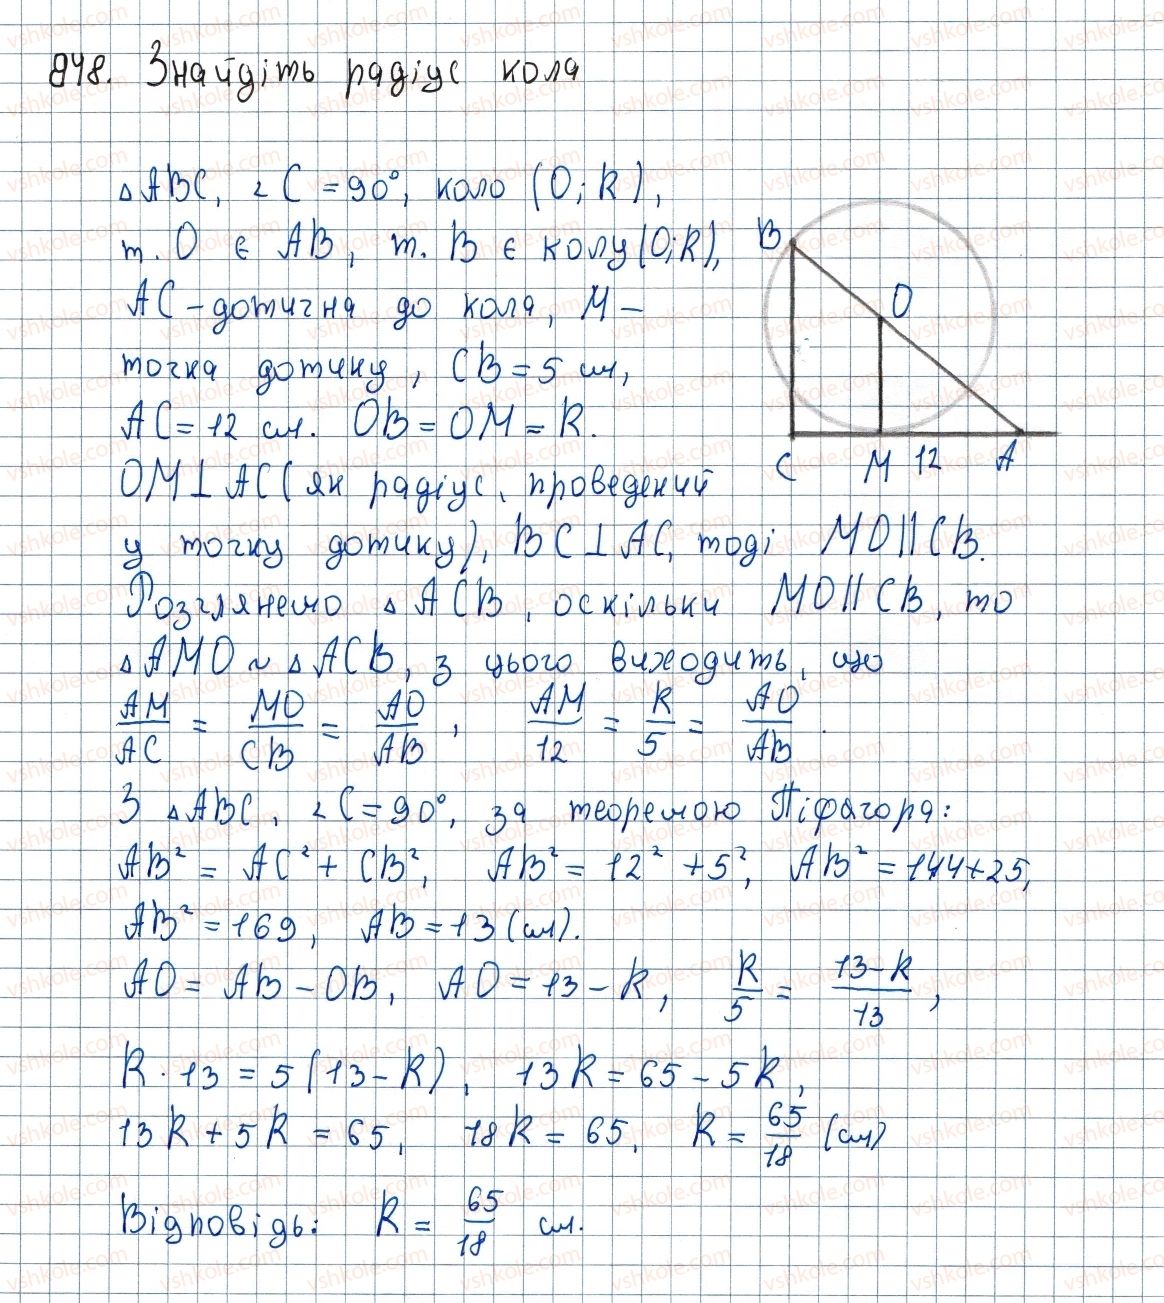 848. Знайдіть радіус кола
△ABC, ∠C = 90°, коло (O; R),
т. O є AB, т. B є колу (O; R),
AC – дотична до кола, M –
точка дотику, CB = 5 см,
AC = 12 см. OB = OM = R.
OM ⊥ AC (як радіус, проведений
у точку дотику), BC ⊥ AC, тоді MO || CB.
Розглянемо △ACB, оскільки MO || CB, то
△AMO ~ △ACB, з цього виходить, що
AM/AC = MO/CB = AO/AB, AM/12 = R/5 = AO/AB.
З △ABC, ∠C = 90°, за теоремою Піфагора:
AB² = AC² + CB², AB² = 12² + 5², AB² = 144 + 25,
AB² = 169, AB = 13 (см).
AO = AB – OB, AO = 13 – R, R/5 = 13–R/13,
R · 13 = 5 (13 – R), 13R = 65 – 5R,
13R + 5R = 65, 18R = 65, R = 65/18 (см)
Відповідь: R = 65/18 см.
B
O
C
M
12
A
vshkole.com